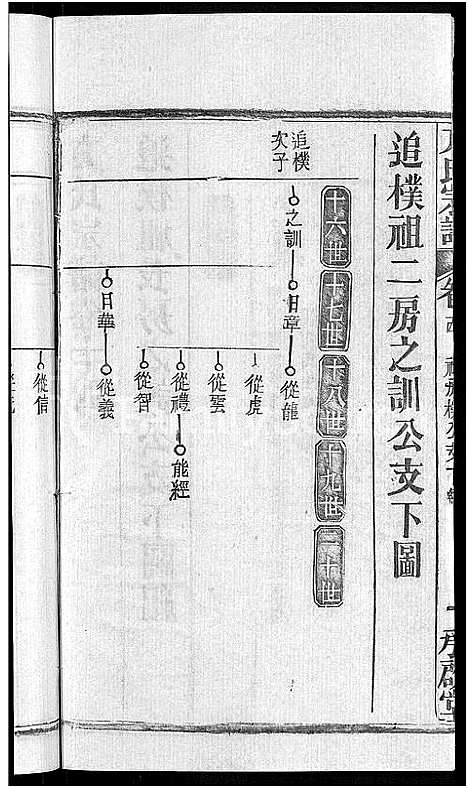 追樸祖二房之訓公支下圖
十六世
十七世
十八世
十九世
二十世
追樸
次子
之訓
日章
從龍
從虎
從雲
從禮
能經
從智
日華
從義
從信